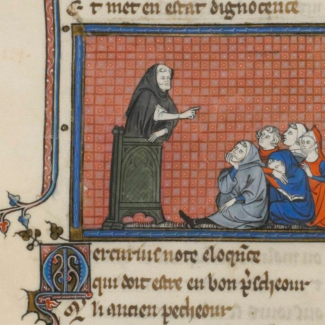 Et met en estat dignocence
Mercurius note eloq̃nce
qui doit estre en bon p̃scheour
li ancien pecheour